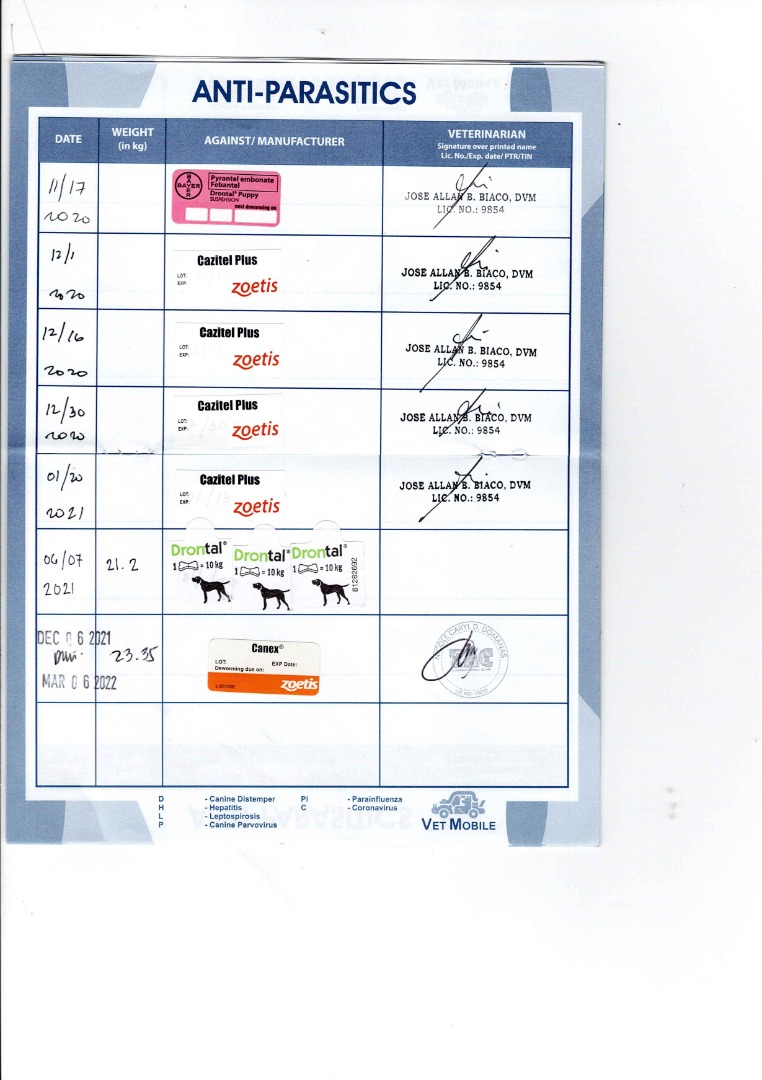 ANTI-PARASITICS
DATE
WEIGHT
(in kg)
AGAINST/ MANUFACTURER
VETERINARIAN
Signature over printed name
Lic. No./Exp. date/ PTR/TIN
11/17
2020
BAYER
BAYER
Pyrantel embonate
Febantel
Drontal® Puppy
SUSPENSION
next deworming on
JOSE ALLAN B. BIACO, DVM
LIC. NO.: 9854
12/1
2020
Cazitel Plus
LOT:
EXP:
zoetis
JOSE ALLAN B. BIACO, DVM
LIC. NO.: 9854
12/16
2020
Cazitel Plus
LOT:
EXP:
zoetis
JOSE ALLAN B. BIACO, DVM
LIC. NO.: 9854
12/30
2020
Cazitel Plus
LOT:
EXP:
zoetis
JOSE ALLAN B. BIACO, DVM
LIC. NO.: 9854
01/20
2021
Cazitel Plus
LOT:
EXP:
zoetis
JOSE ALLAN B. BIACO, DVM
LIC. NO.: 9854
06/07
2021
21.2
Drontal®
1 = 10 kg
Drontal®
1 = 10 kg
Drontal®
1 = 10 kg
81282692
DEC 06 2021
23.35
MAR 06 2022
Canex®
LOT:
EXP Date:
Deworming due on:
zoetis
CARYL D. DOMANAS
D - Canine Distemper
H - Hepatitis
L - Leptospirosis
P - Canine Parvovirus
Pi - Parainfluenza
C - Coronavirus
VET MOBILE